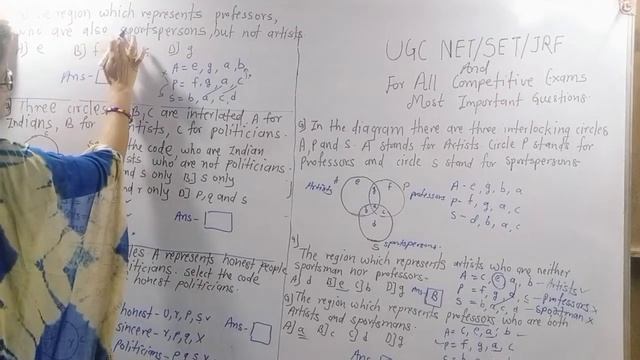 region which represents professors,
who are also sportspersons, but not artists
e B] f D] g
Ans-
A = e, g, a, b
P = f, g, a, c
S = b, a, c, d
Three circles B, C are interlated. A for
Indians, B for C for politicians.
the code, who are Indian
who are not politicians.
and S only B] S only
and r only D] P, q and s
Ans-
A represents honest people
politicians. select the code
honest politicians.
honest - U, r, P, s
sincere - r, P, q, x
Politicians - P, q, s
Ans-
UGC NET/SET/JRF
And
For All Competitive Exams
Most Important Questions.
Q] In the diagram there are three interlocking circles
A, P and S. A stands for Artists Circle P stands for
Professors and circle S stand for Sportspersons
Artists A e f P professors
g
d
S sportspersons
A - e, g, b, a
P - f, g, a, c
S - d, b, a, c
The region which represents artists who are neither
sportsman nor professors.
A] d B] e C] b D] g Ans- B
A = c, e, a, b - Artists ✓
P = f, g, a, c - professors x
S = b, a, c, d - Sportsman x
The region which represents professors who are both
Artists and sportsmans.
A] a B] c C] d D] g
Ans
A = c, e, a, b
P = f, g, a, c